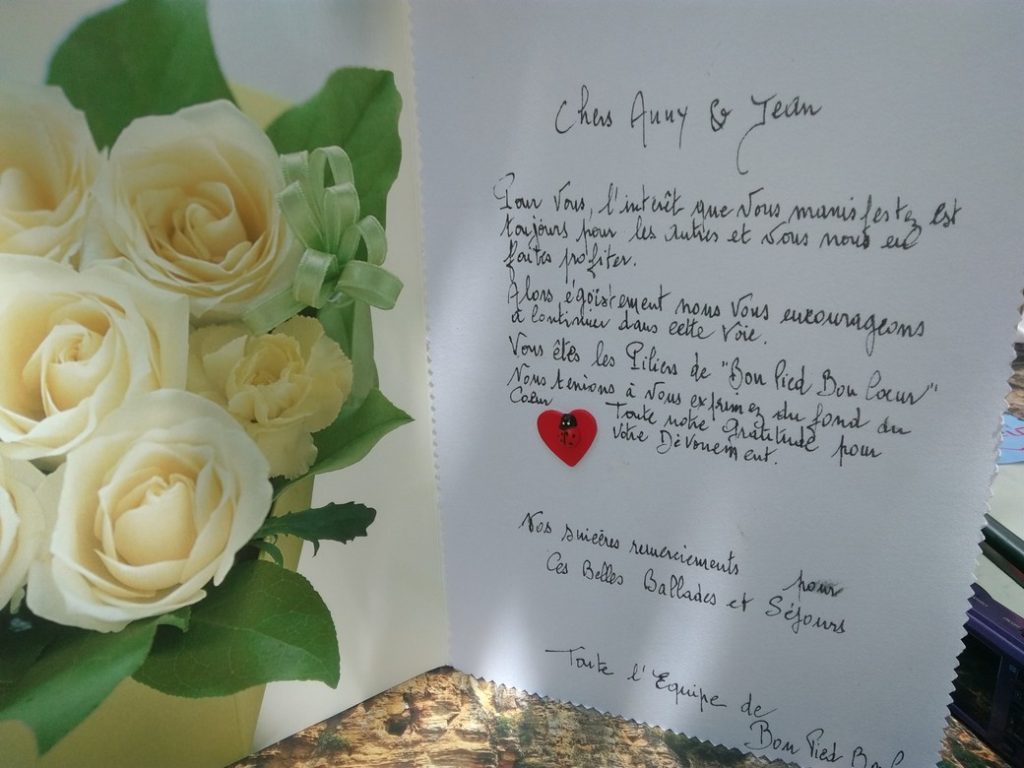 Chers Anny & Jean
Pour Vous, l'intérêt que Vous manifestez est
toujours pour les autres et Vous nous en
faites profiter.
Alors égoïstement nous Vous encourageons
à continuer dans cette Voie.
Vous êtes les Piliers de "Bon Pied Bon Cœur"
Nous tenions à Vous exprimez du fond du
Cœur
Toute notre Gratitude pour
Votre Dévouement.
Nos sincères remerciements pour
Ces Belles Ballades et Séjours
Toute l'Equipe de
Bon Pied Bon